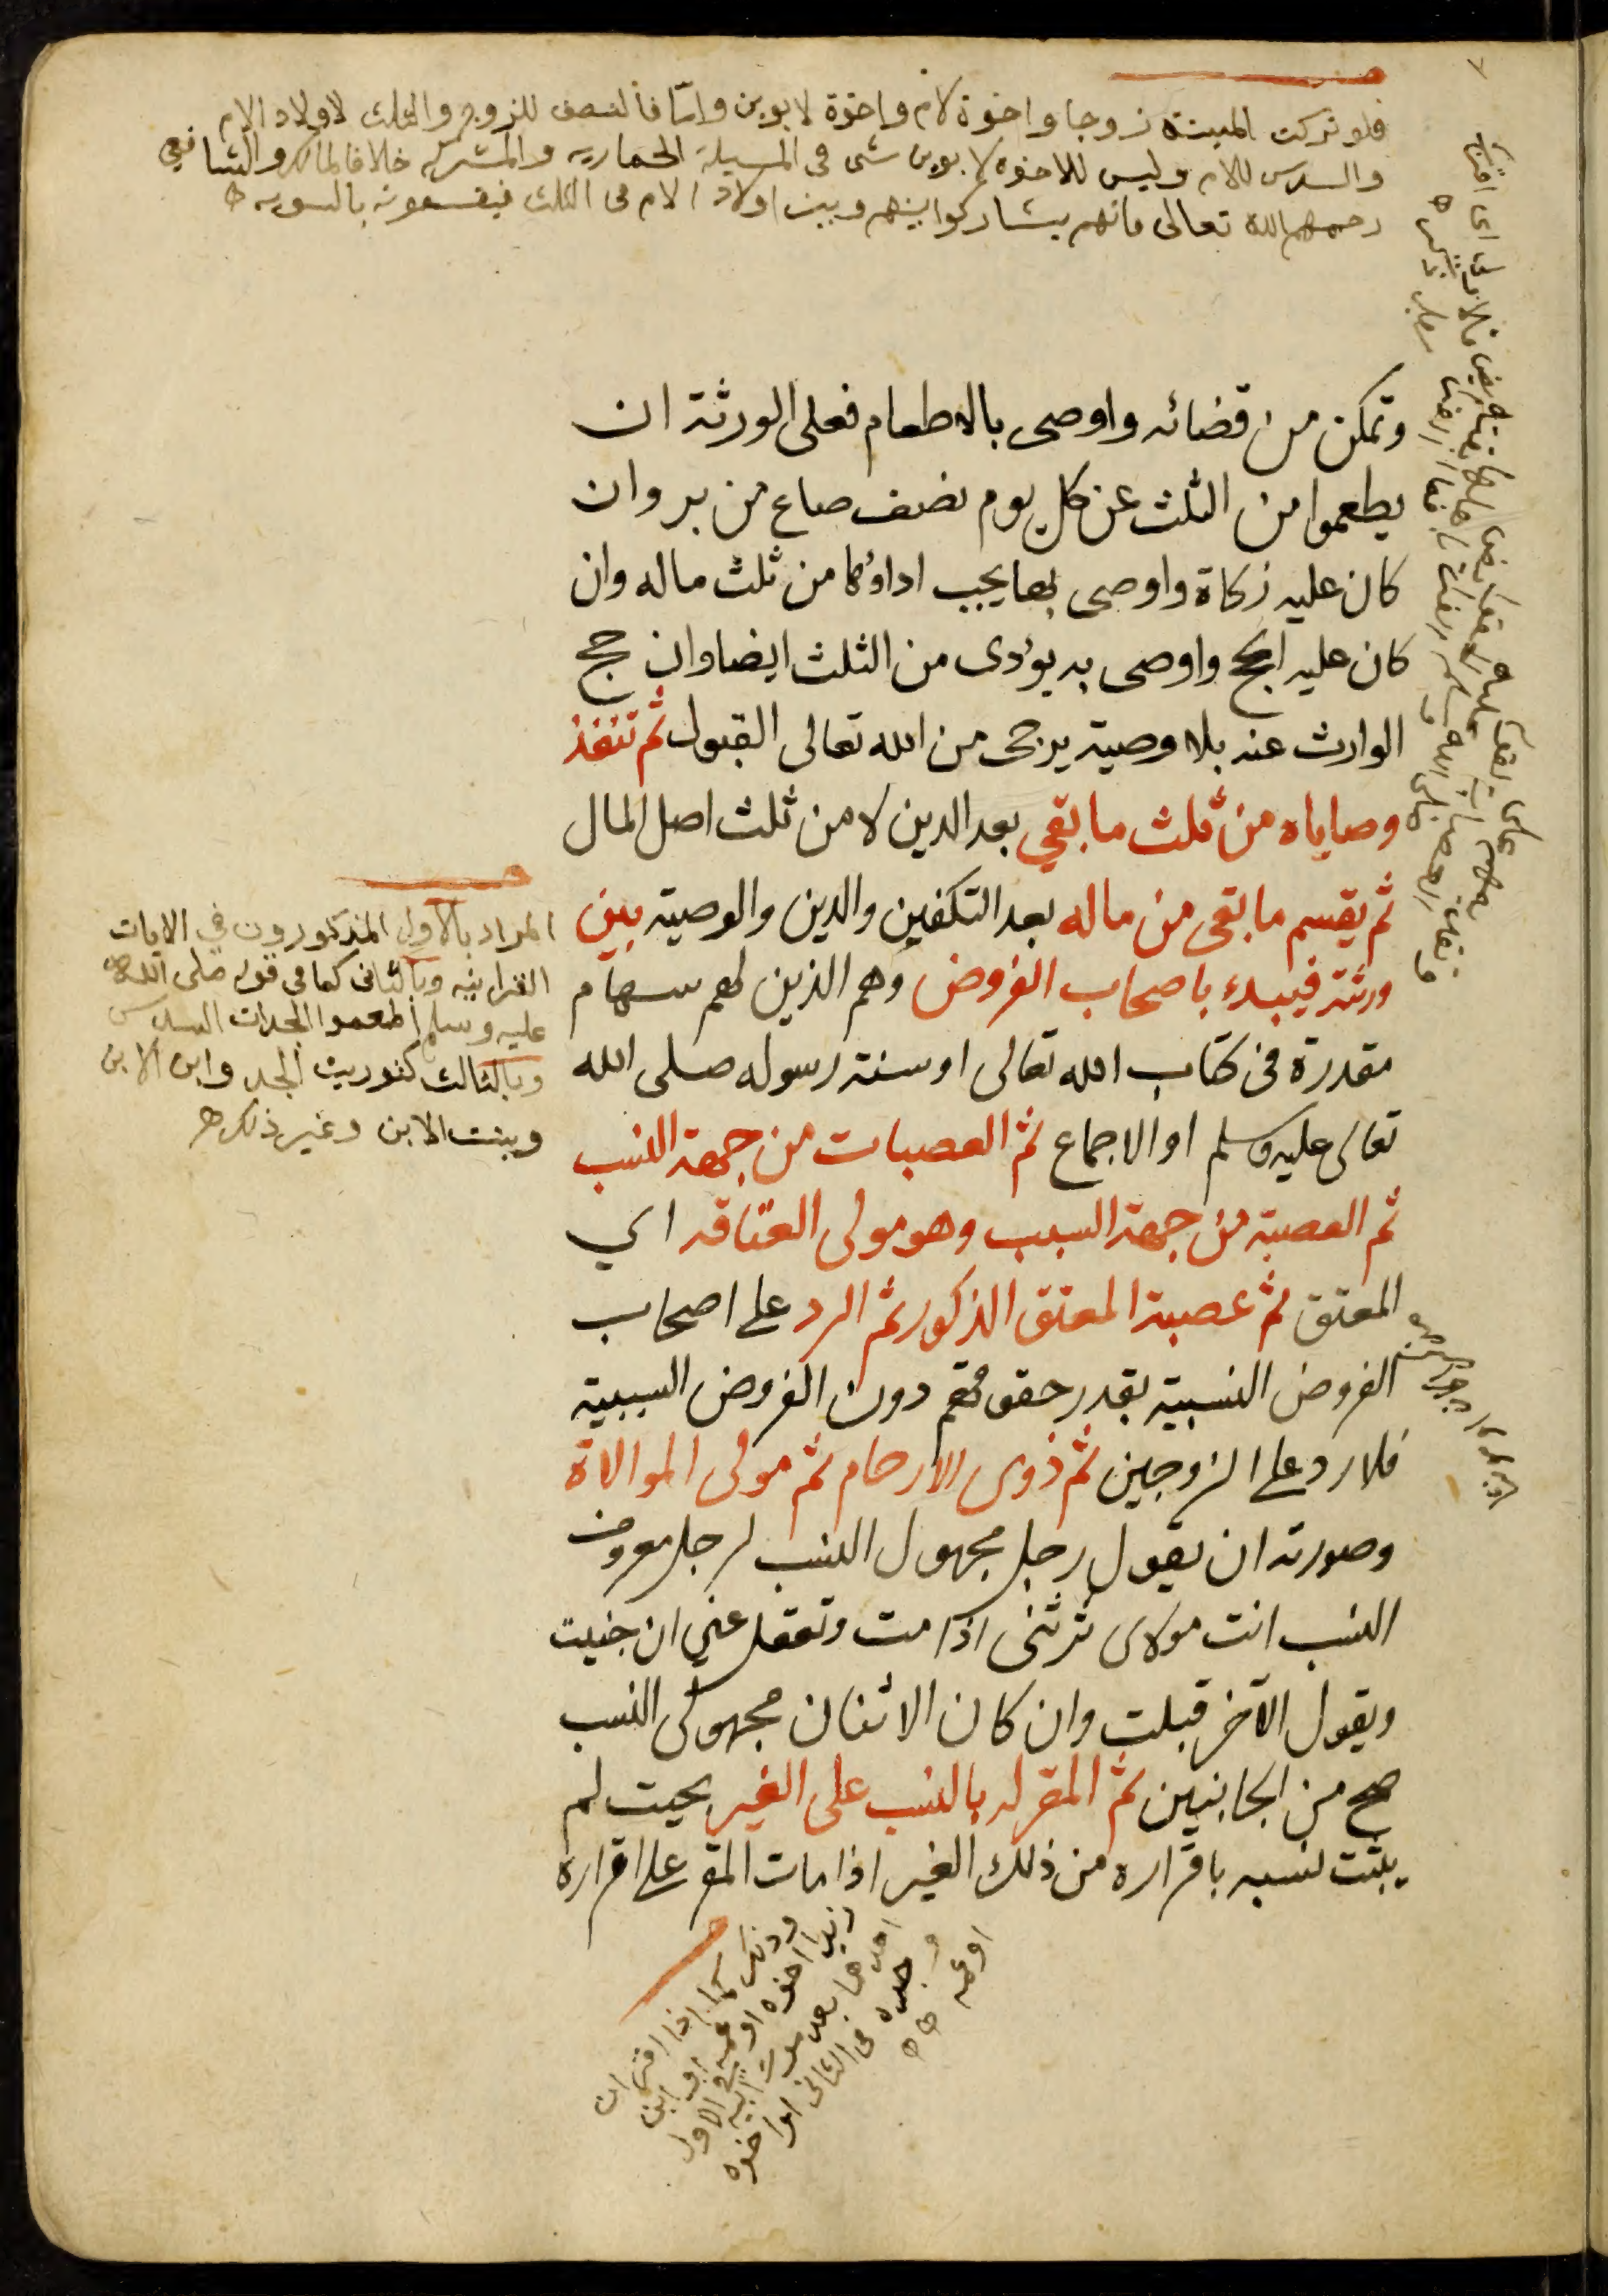 فلو تركت الميتة زوجا واخوة لام واخوة لابوين واما فالنصف للزوج والثلث لاولاد الام
والسدس للام وليس للاخوة لابوين شى فى المسيلة الحمارية والمشتركة خلافا لمالك والشافعي
رحمهم الله تعالى فانهم يشاركوا بينهم وبين اولاد الام فى الثلث فيقسمونه بالسويه
وتمكن من قضائه واوصى بالاطعام فعلى الورثة ان
يطعموا من الثلث عن كل يوم نصف صاع من بر وان
كان عليه زكاة واوصى بها يجب اداؤها من ثلث ماله وان
كان عليه الحج واوصى به يؤدى من الثلث ايضا وان حج
الوارث عنه بلا وصية يرجى من الله تعالى القبول ثم تنفذ
وصاياه من ثلث ما بقي بعد الدين لا من ثلث اصل المال
ثم يقسم ما بقى من ماله بعد التكفين والدين والوصية بين
ورثته فيبدء باصحاب الفروض وهم الذين لهم سهام
مقدرة فى كتاب الله تعالى او سنة رسوله صلى الله
تعالى عليه وسلم او الاجماع ثم العصبات من جهة النسب
ثم العصبة من جهة السبب وهو مولى العتاقه اي
المعتق ثم عصبة المعتق الذكور ثم الرد على اصحاب
الفروض النسبية بقدر حقوقهم دون الفروض السببية
فلا رد على الزوجين ثم ذوى الارحام ثم مولى الموالاة
وصورته ان يقول رجل مجهول النسب لرجل معروف
النسب انت مولاى ترثنى اذا مت وتعقل عني ان جنيت
ويقول الآخر قبلت وان كان الاثنان مجهولى النسب
صح من الجانبين ثم المقر له بالنسب على الغير بحيت لم
يثبت نسبه باقراره من ذلك الغير اذا مات المقر على اقراره
المراد بالاول المذكورون في الايات
القرانيه وبالثانى كما فى قوله صلى الله
عليه وسلم اطعموا الجدات السدس
وبالثالث كتوريث الجد وابن الابن
وبنت الابن وغير ذلك
وذلك كما اذا اقر ان
زيدا اخوه او عمه او ابن
احدهما بعد موت ابيه فى الاول
وجده فى الثانى او اخوه
او عمه